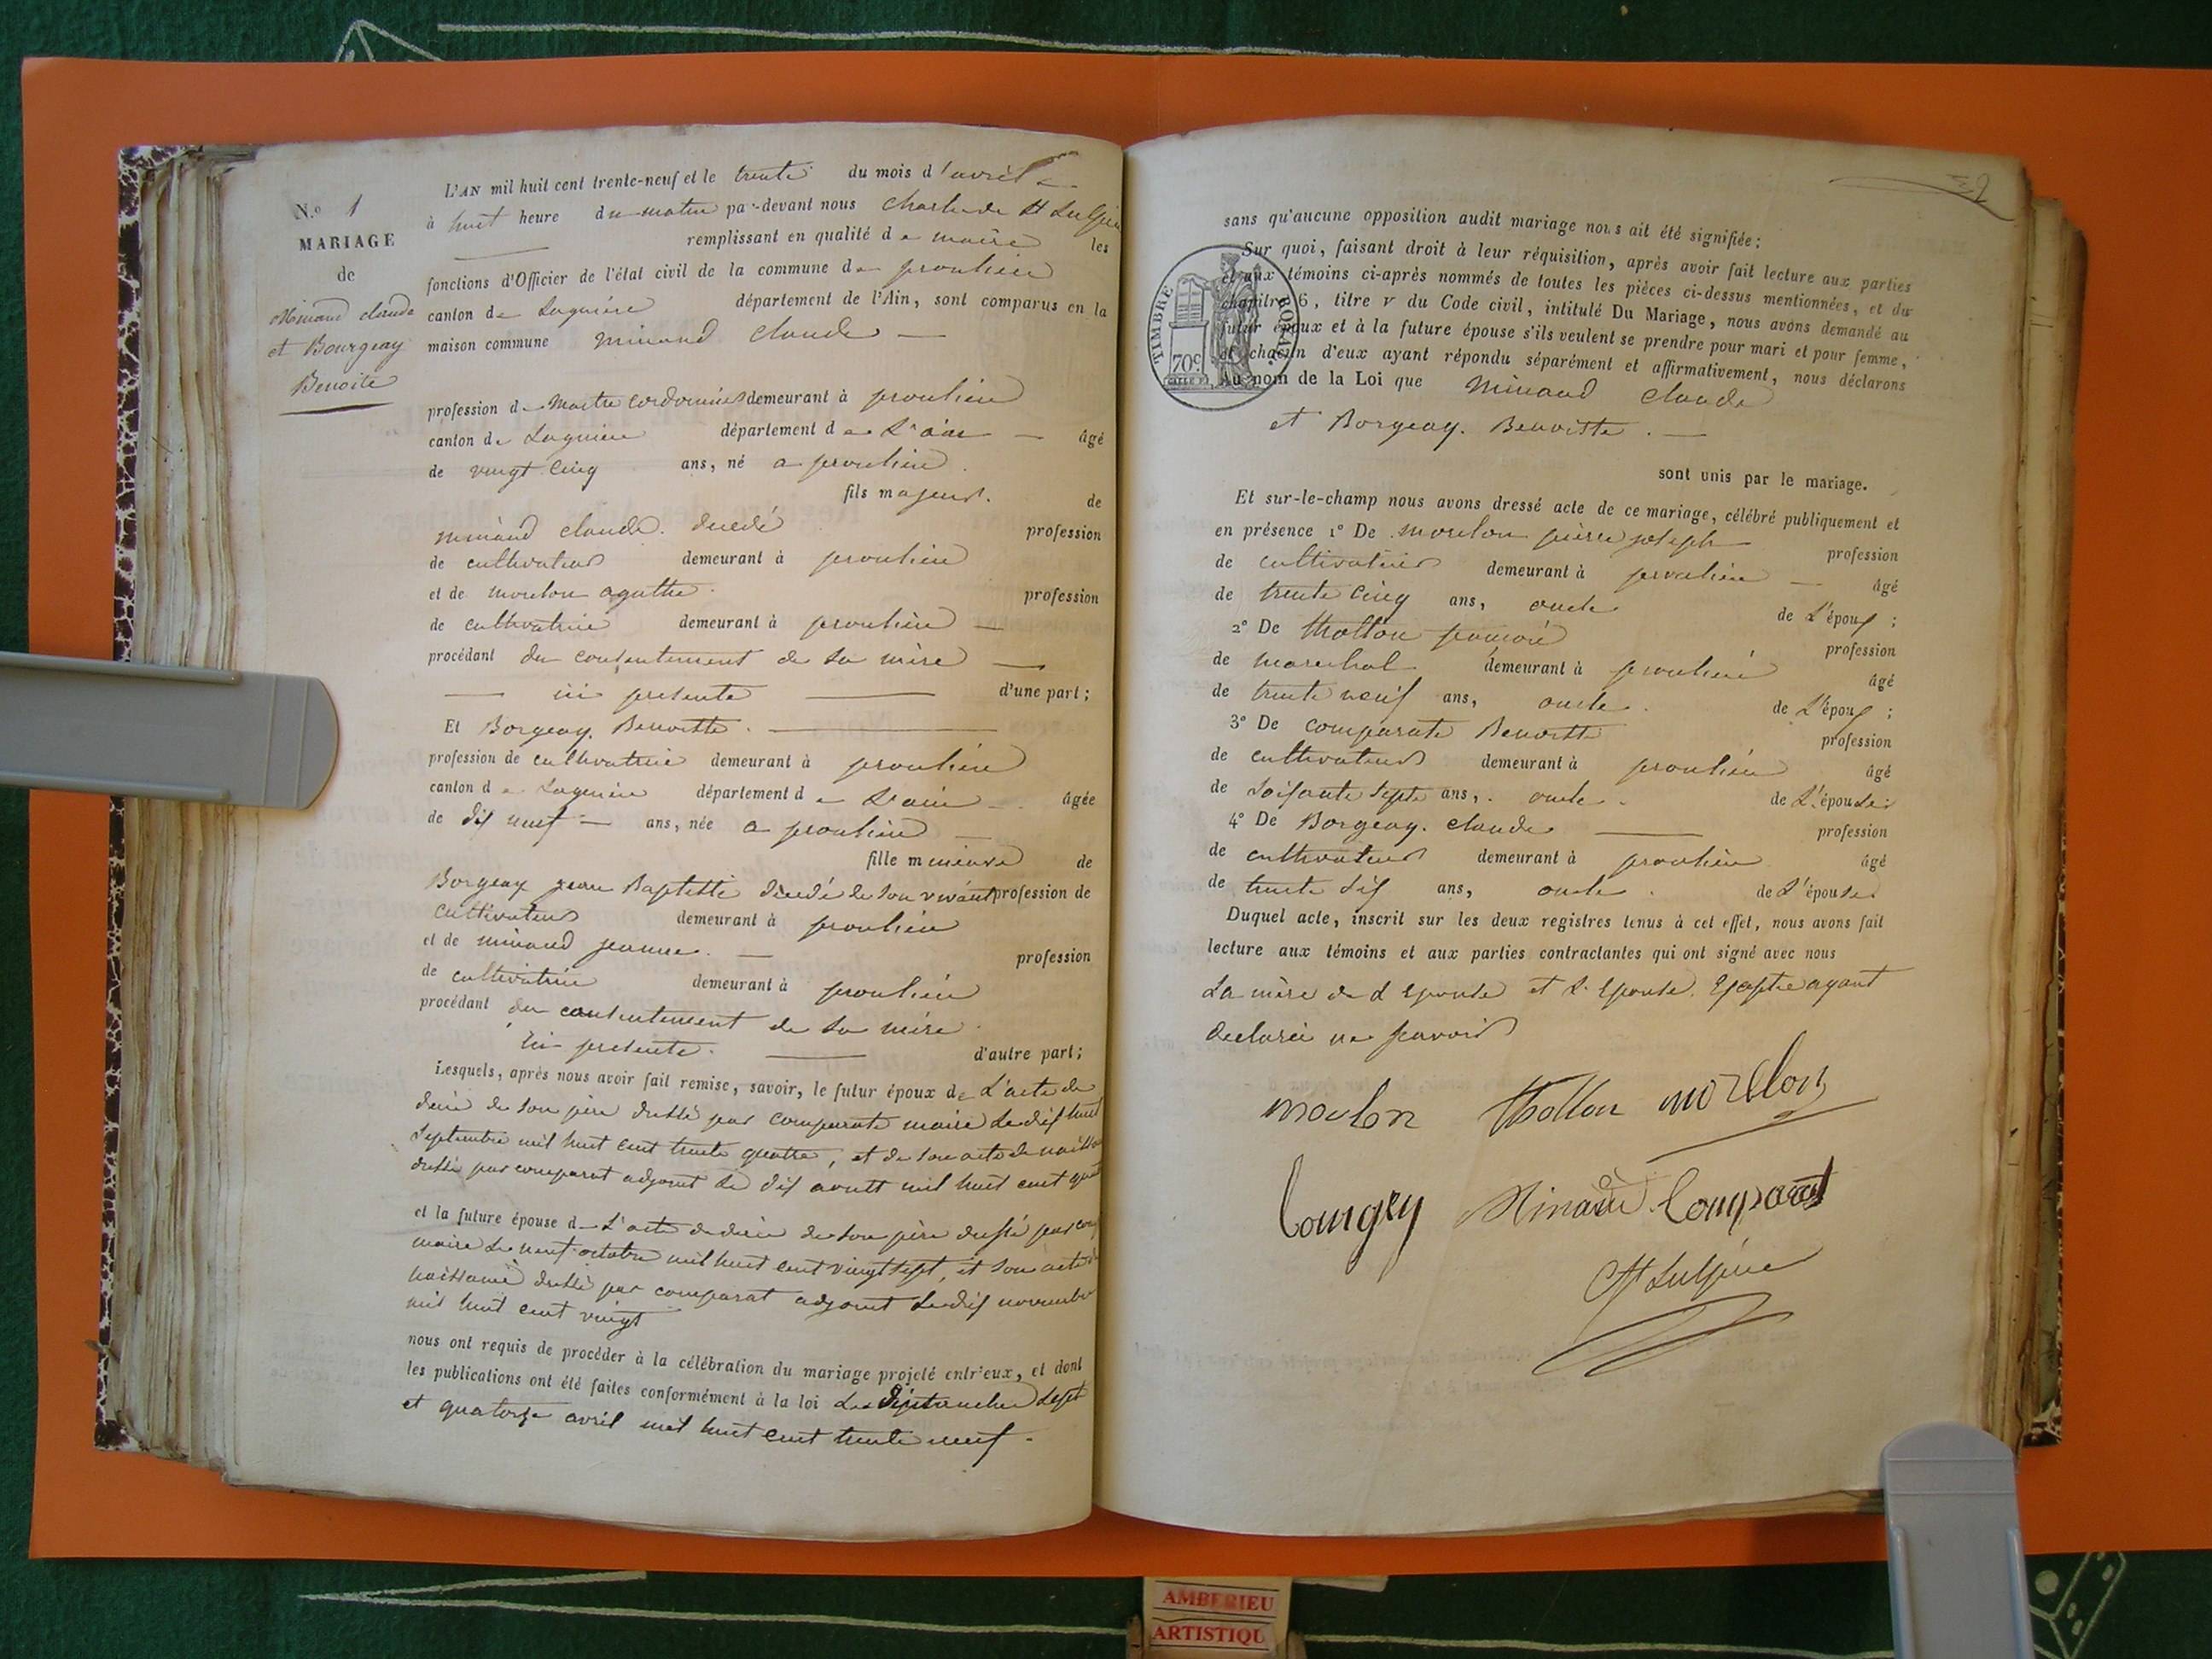 N.º 1
MARIAGE
de
Minand claude
et Bourgeay
Benoite
L'AN mil huit cent trente-neuf et le trente du mois d'avril
à huit heure du matin par-devant nous Charles de St Sulpice
remplissant en qualité de maire les
fonctions d'Officier de l'état civil de la commune de proulieu
canton de Lagnieu département de l'Ain, sont comparus en la
maison commune minand claude
profession de Maitre Cordonnier demeurant à proulieu
canton de Lagnieu département de L'ain âgé
de vingt cinq ans, né a proulieu
fils majeur de
minand claude. décédé profession
de cultivateur demeurant à proulieu
et de morelon agathe profession
de cultivatrice demeurant à proulieu
procédant du consentement de sa mère
ici presente d'une part;
Et Borgeay. Benoitte.
profession de cultivatrice demeurant à proulieu
canton de Lagnieu département de L'ain âgée
de dix neuf ans, née a proulieu
fille mineure de
Borgeay jean Baptiste décédé de son vivant profession de
cultivateur demeurant à proulieu
et de minand jeanne. profession
de cultivatrice demeurant à proulieu
procédant du consentement de sa mère
ici presente. d'autre part;
Lesquels, après nous avoir fait remise, savoir, le futur époux de L'acte de
décè de son père dressé par comparate maire le dix huit
septembre mil huit cent trente quatre, et de son acte de
dressé par comparat adjoint le dix aoutt mil huit cent
et la future épouse d L'acte de décè de son père dressé par
maire le neuf octobre mil huit cent vingt sept, et son acte
naissance dressé par comparat adjoint le dix novembre
mil huit cent vingt
nous ont requis de procéder à la célébration du mariage projeté entr'eux, et dont
les publications ont été faites conformément à la loi Les sept
et quatorze avril mil huit cent trente neuf.
sans qu'aucune opposition audit mariage nous ait été signifiée;
Sur quoi, faisant droit à leur réquisition, après avoir fait lecture aux parties
et aux témoins ci-après nommés de toutes les pièces ci-dessus mentionnées, et du
chapitre 6, titre v du Code civil, intitulé Du Mariage, nous avons demandé au
futur époux et à la future épouse s'ils veulent se prendre pour mari et pour femme,
et chacun d'eux ayant répondu séparément et affirmativement, nous déclarons
Au nom de la Loi que minand claude
TIMBRE ROYAL
70c.
et Borgeay. Benoitte.
sont unis par le mariage.
Et sur-le-champ nous avons dressé acte de ce mariage, célébré publiquement et
en présence 1º De morelon pierre joseph profession
de cultivateur demeurant à proulieu âgé
de trente cinq ans, oncle de L'époux;
2º De thollon profession
de marechal demeurant à proulieu âgé
de trente neuf ans, oncle. de L'époux;
3º De comparate Benoitt profession
de cultivateur demeurant à proulieu âgé
de soixante septe ans, oncle. de L'épouse;
4º De Borgeay. claude profession
de cultivateur demeurant à proulieu âgé
de trente dix ans, oncle. de L'épouse
Duquel acte, inscrit sur les deux registres tenus à cet effet, nous avons fait
lecture aux témoins et aux parties contractantes qui ont signé avec nous
La mère de L'epouse et L'epouse ayant
declarée ne savoir
morlon thollon morelon
Minand Comparat
St Sulpice
AMBERIEU
ARTISTIQU